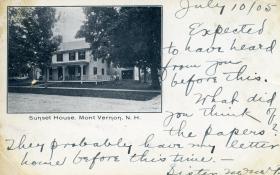 July 10/05
Expected
to have heard
from you
before this.
What did
you think of
the papers?
Sunset House, Mont Vernon, N. H.
They probably have my letter
home before this time. —
Sister